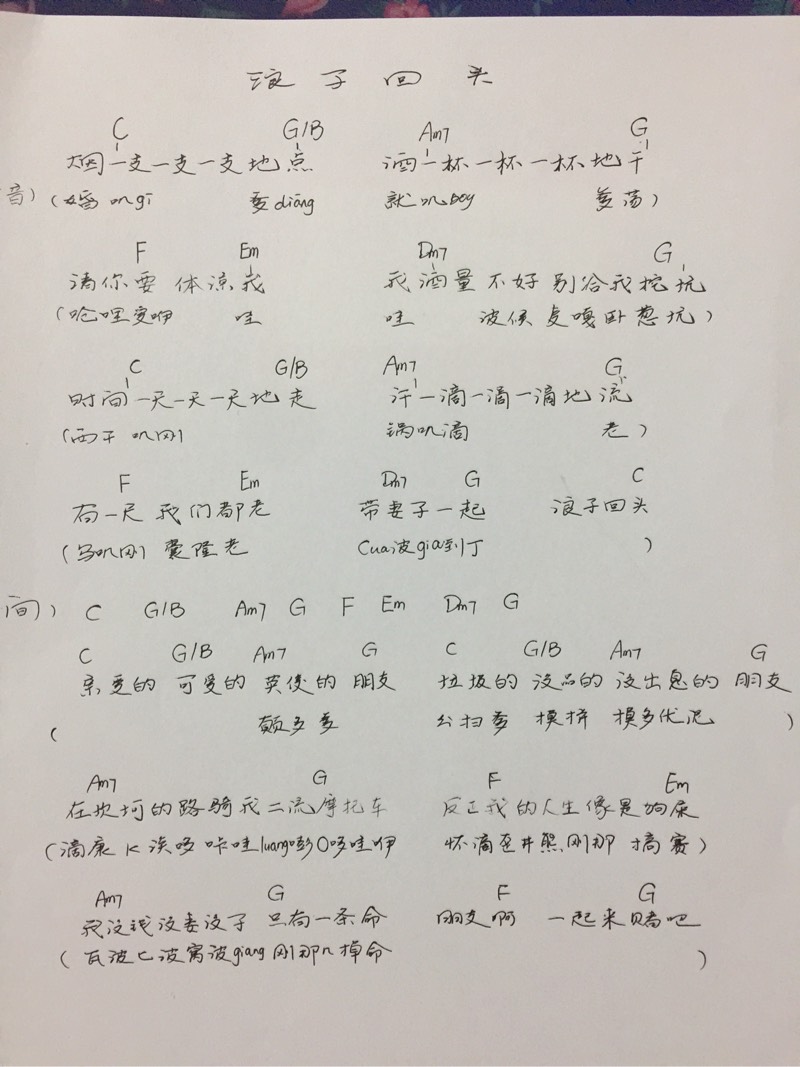 浪子回头
C G/B Am7 G
烟一支一支一支地点 酒一杯一杯一杯地干
音) (婚叽gī 爹diāng 就叽boy 爹荡)
F Em Dm7 G
请你要体谅我 我酒量不好别给我挖坑
(呛哩爱咿 哇 哇 波候 嘎卧葱坑)
C G/B Am7 G
时间一天一天一天地走 汗一滴一滴一滴地流
(西干叽刚 锅叽滴 老)
F Em Dm7 G C
有一天我们都老 带妻子一起 浪子回头
(乌叽刚囊隆老 Cua波gia到丁 )
间) C G/B Am7 G F Em Dm7 G
C G/B Am7 G C G/B Am7 G
亲爱的 可爱的 英俊的 朋友 垃圾的 没品的 没出息的 朋友
( 颠多爹 公扫爹 摸拼 摸多优泥 )
Am7 G F Em
在坎坷的路骑我二流摩托车 反正我的人生像是狗屎
(滴康K 哆咔哇luang嘭O哆哇咿 怀滴 井熊刚那 搞赛)
Am7 G F G
我没钱没妻没子只有一条命 朋友啊 一起来赌吧
(瓦波七波 波giang刚那n掉命 )